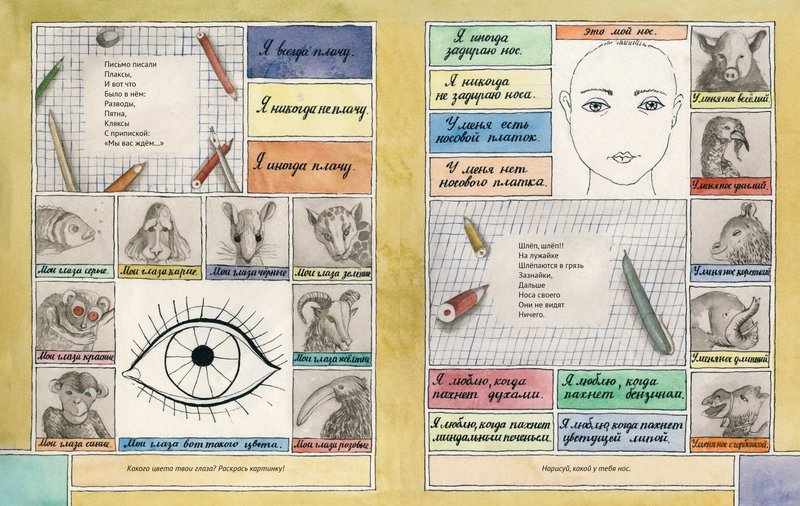 Письмо писали
Плаксы,
И вот что
Было в нём:
Разводы,
Пятна,
Кляксы
С припиской:
«Мы вас ждём...»
Я всегда плачу.
Я никогда не плачу.
Я иногда плачу.
Мои глаза серые.
Мои глаза карие.
Мои глаза чёрные
Мои глаза зелёные
Мои глаза красные.
Мои глаза жёлтые
Мои глаза синие.
Мои глаза вот такого цвета.
Мои глаза розовые
Какого цвета твои глаза? Раскрась картинку!
Я иногда
задираю нос.
Я никогда
не задираю носа.
У меня есть
носовой платок.
У меня нет
носового платка.
Это мой нос.
У меня нос весёлый.
У меня нос унылый.
У меня нос короткий
У меня нос длинный.
У меня нос с горбинкой.
Шлёп, шлёп!!
На лужайке
Шлёпаются в грязь
Зазнайки,
Дальше
Носа своего
Они не видят
Ничего.
Я люблю, когда
пахнет духами.
Я люблю, когда
пахнет бензином.
Я люблю, когда пахнет
миндальным печеньем.
Я люблю, когда пахнет
цветущей липой.
Нарисуй, какой у тебя нос.